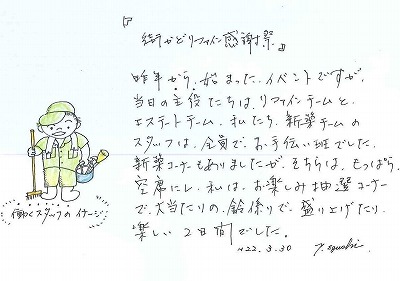 『街かどリファイン感謝祭』
昨年から、始まった、イベントですが、
当日の主役たちは、リファインチームと、
エステートチーム。私たち、新築チームの
スタッフは、全員で、お手伝い班でした。
新築コーナーもありましたが、そちらは、もっぱら、
空席にし、私は、お楽しみ抽選コーナー
で、大当たりの、鈴係りで、盛り上げたり、
楽しい2日間でした。
'22.3.30
働くスタッフのイメージ